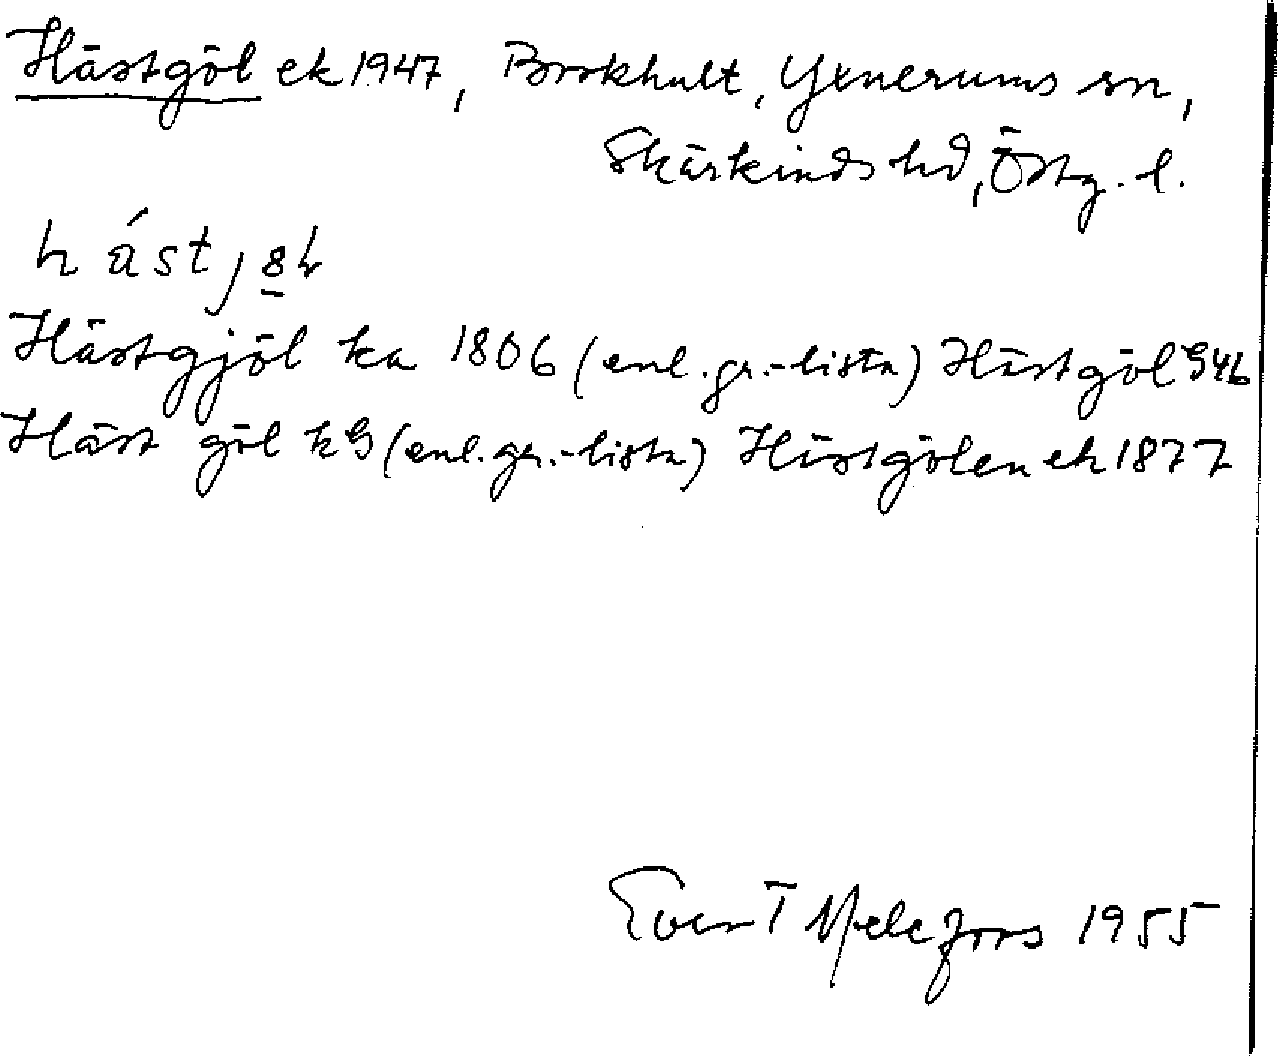 Hästgöl ek 1947, Borkhult, Yxnerums sn,
Skärkinds hd, Östg. l.
Hästgjöl ka 1806 (enl. gr.-lista) Hästgöl G46
Häst göl kG (enl. gr.-lista) Hästgölen ek 1877
Evert Melefors 1955